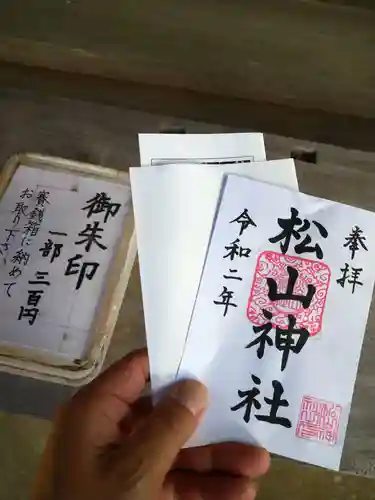 奉拝
松山神社
令和二年
御朱印
一部 三百円
賽銭箱に納めて
お取り下さい